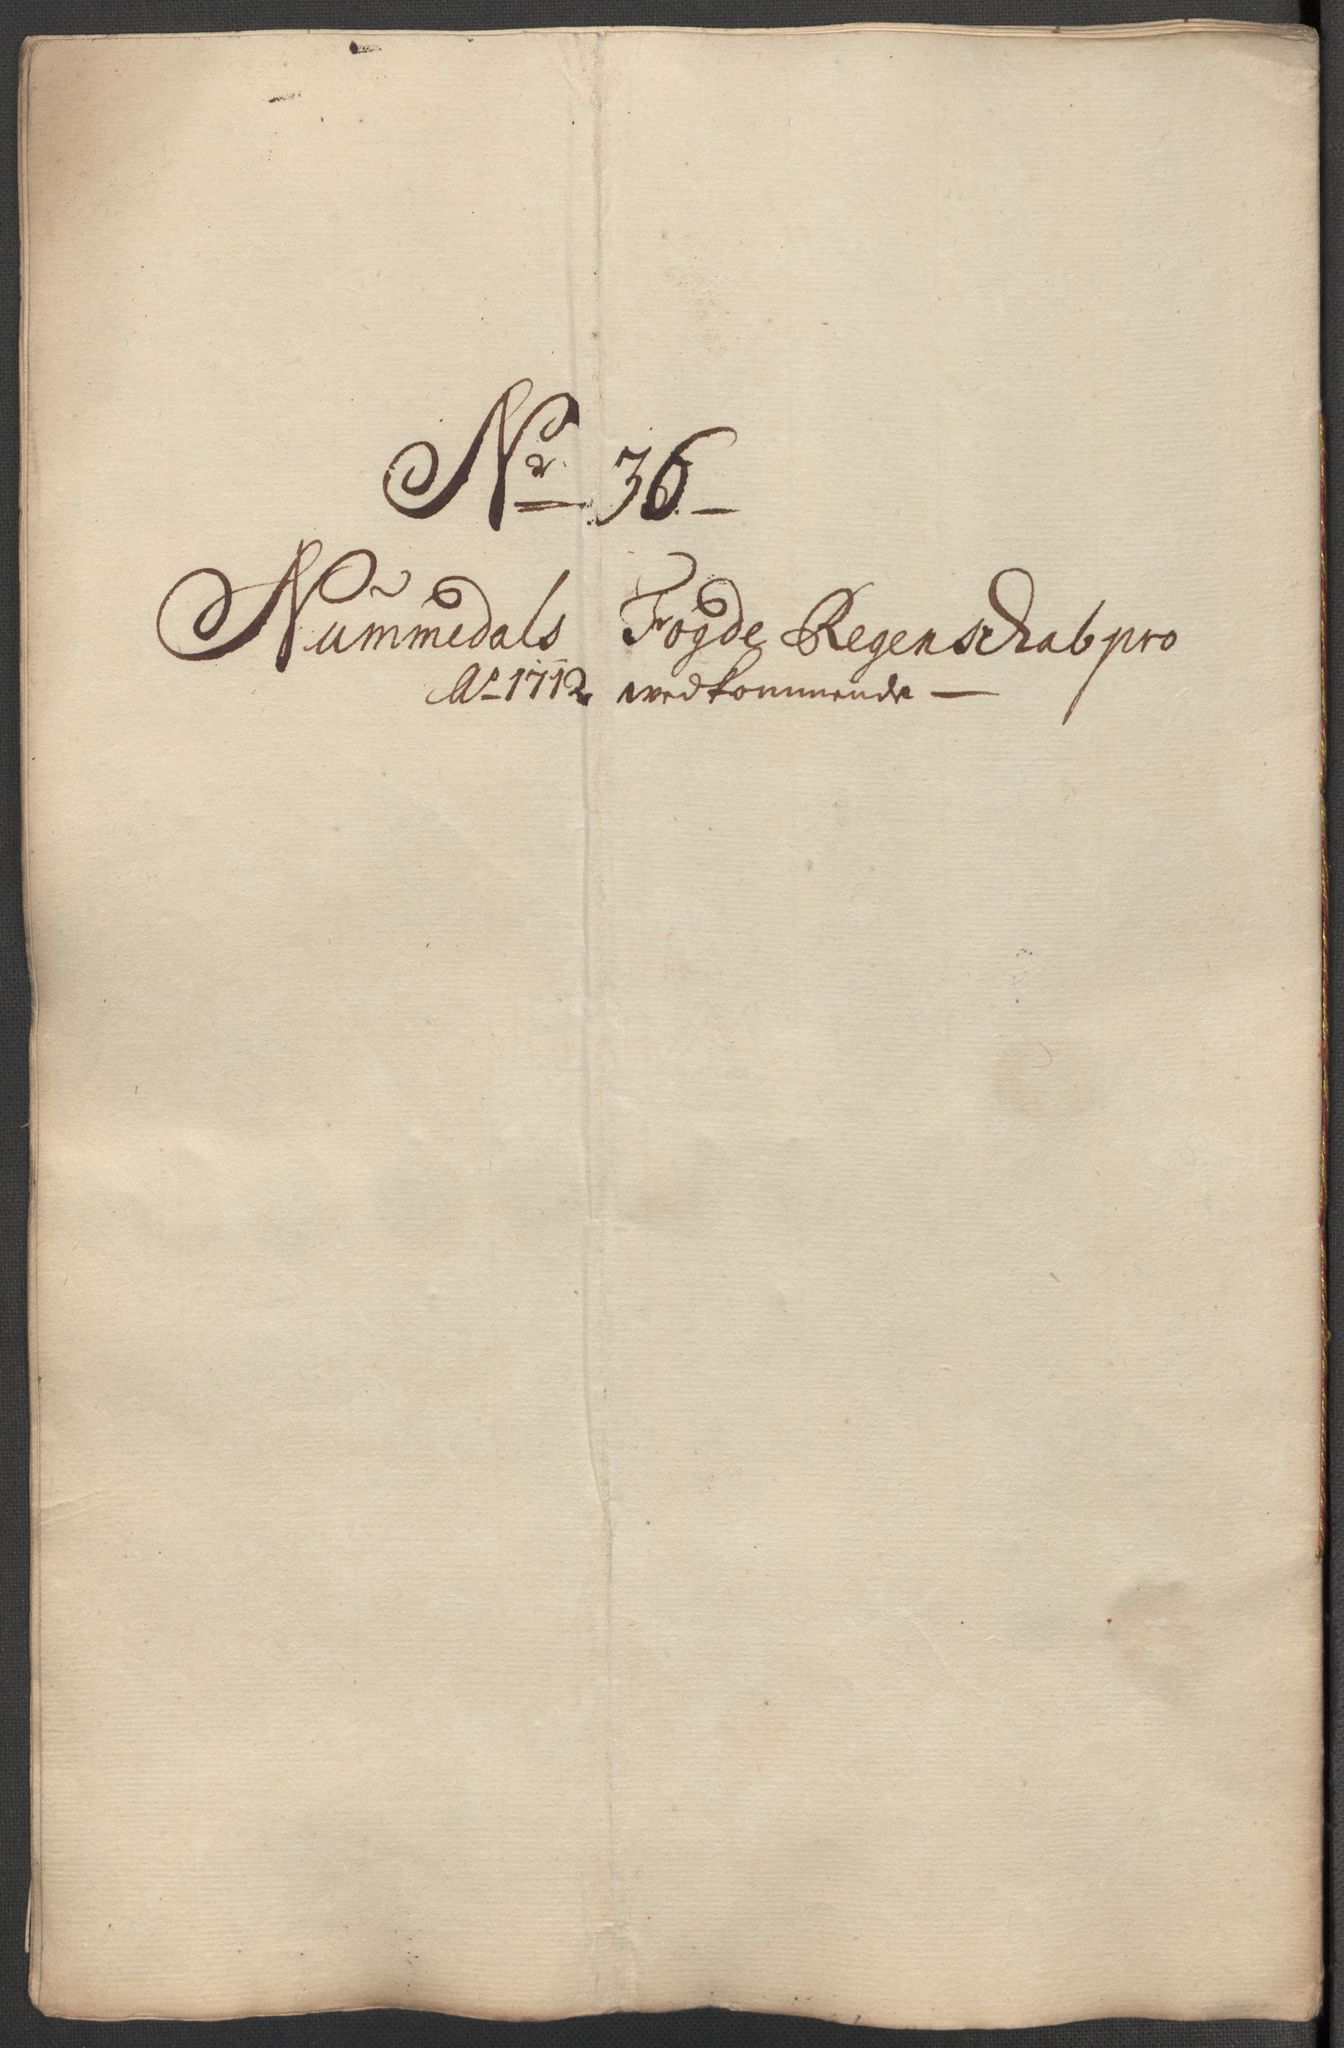 Nr. 36
Nummedals Fogde Regenschab pro
Ao 1712 vedkommende